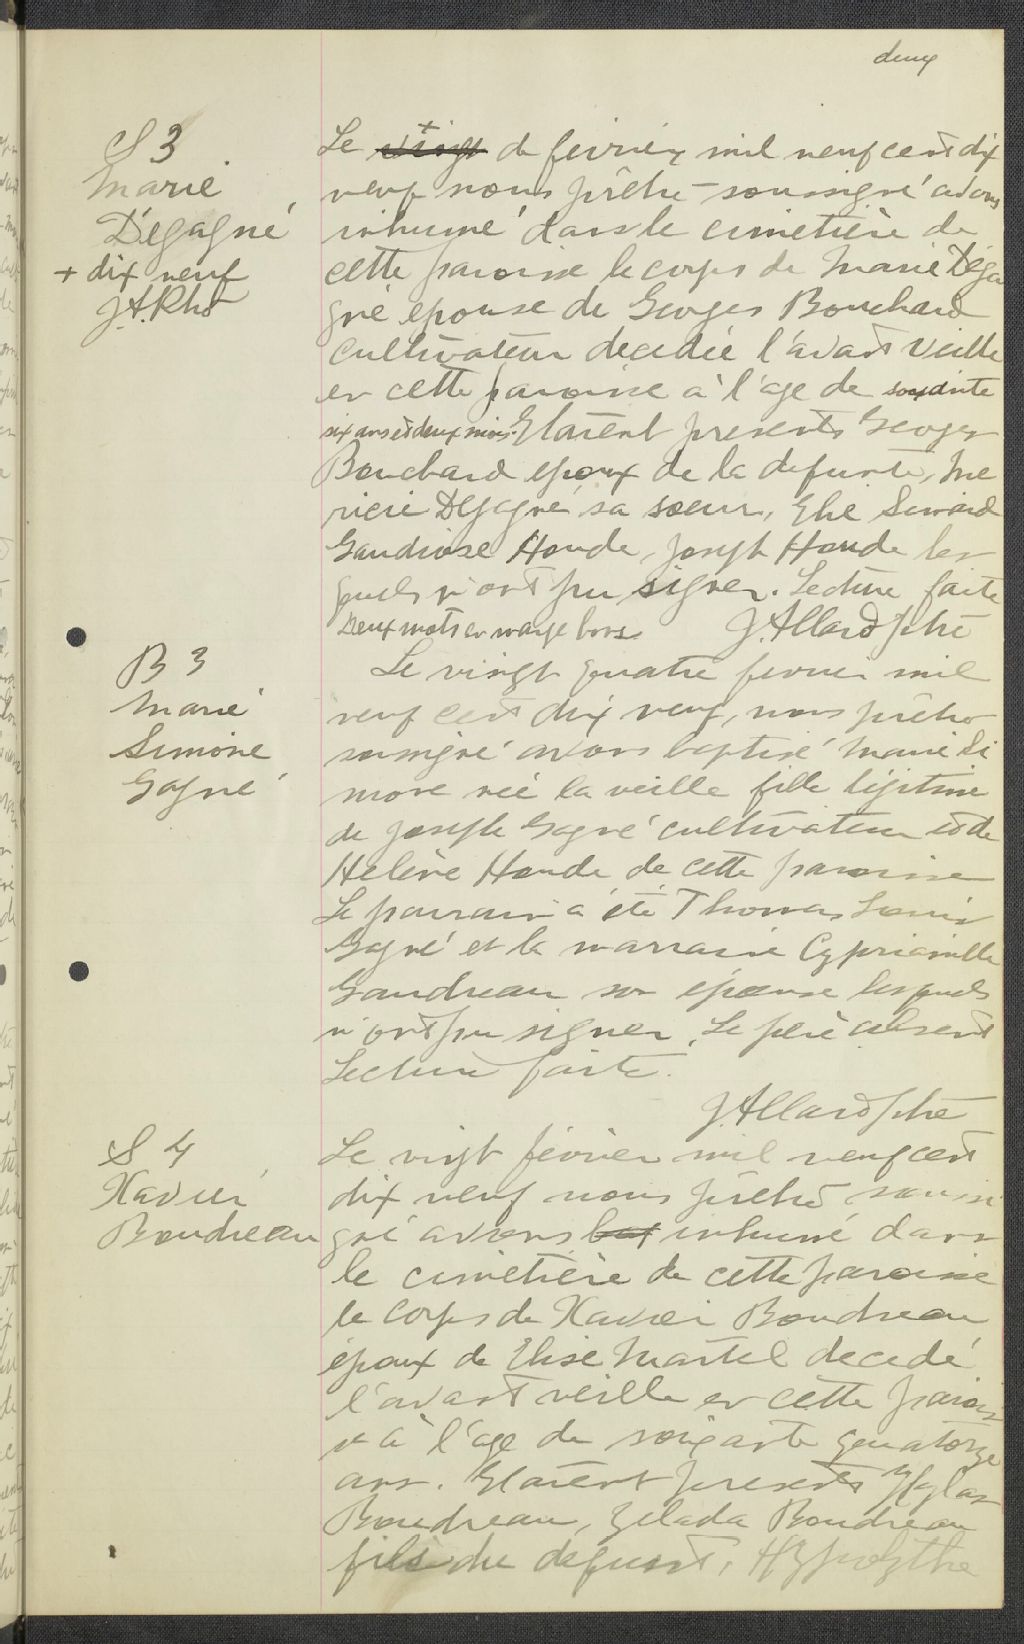 deux
S 3
Marie
Dégagné
+ dix neuf
J.A. Ptre
Le + vingt de février mil neuf cent dix
neuf nous prêtre soussigné avons
inhumé dans le cimetière de
cette paroisse le corps de Marie Déga
gné épouse de Georges Bouchard
cultivateur decedée l'avant veille
en cette paroisse à l'age de soixante
six ans et deux mois. Etaient presents Georges
Bouchard epoux de la defunte,
Dégagné sa soeur, Elie Simard
Gaudiose Houde, Joseph Houde les
quels n'ont pu signer. Lecture faite
Deux mots en marge bons J. Allard Ptre
B 3
Marie
Simone
Gagné
Le vingt quatre fevrier mil
neuf cent dix neuf, nous prêtre
soussigné avons baptisé Marie Si
mone née la veille fille légitime
de Joseph Gagné cultivateur et de
Hélène Houde de cette paroisse
Le parrain a été Thomas Louis
Gagné et la marraine
Gaudreau son épouse lesquels
n'ont pu signer. Le père absent
Lecture faite.
J. Allard Ptre
S 4
Xavier
Boudreau
Le vingt février mil neuf cent
dix neuf nous prêtre soussi
gné avons bap inhumé dans
le cimetière de cette paroisse
le corps de Xavier Boudreau
époux de Elise Martel decedé
l'avant veille en cette parois
se à l'age de soixante quatorze
ans. Etaient presents Hylas
Boudreau, Zelada Boudreau
fils du defunt, Hyppolythe